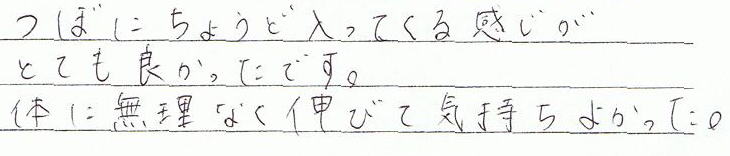 つぼにちょうど入ってくる感じが
とても良かったです。
体に無理なく伸びて気持ちよかった。